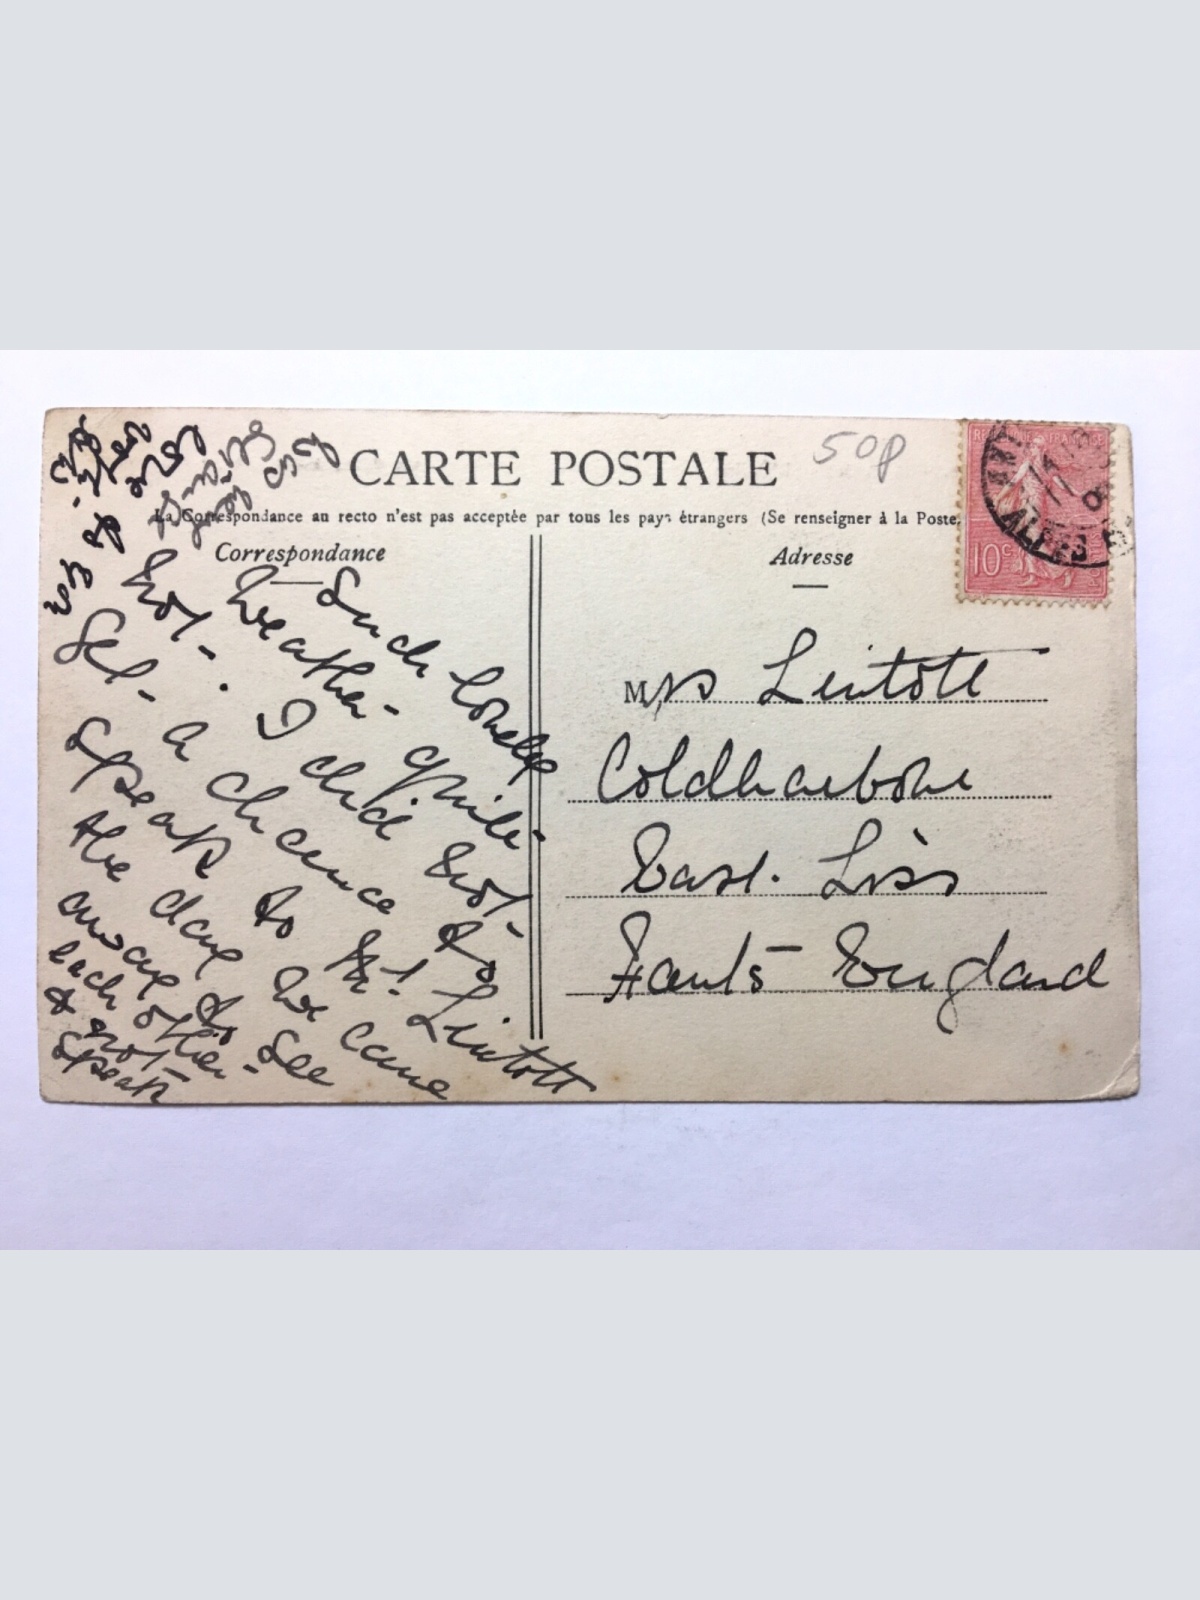 CARTE POSTALE
50p
La Correspondance au recto n'est pas acceptée par tous les pays étrangers (Se renseigner à la Poste
Correspondance
Adresse
RÉPUBLIQUE FRANÇAISE
10c
ALPES
Mrs Lintott
Coldharbour
East Liss
Hants England
Such lovely
weather - quite
hot - I did not
get a chance to
speak to Mr Lintott
the day we came
away to see
each other
& not
speak